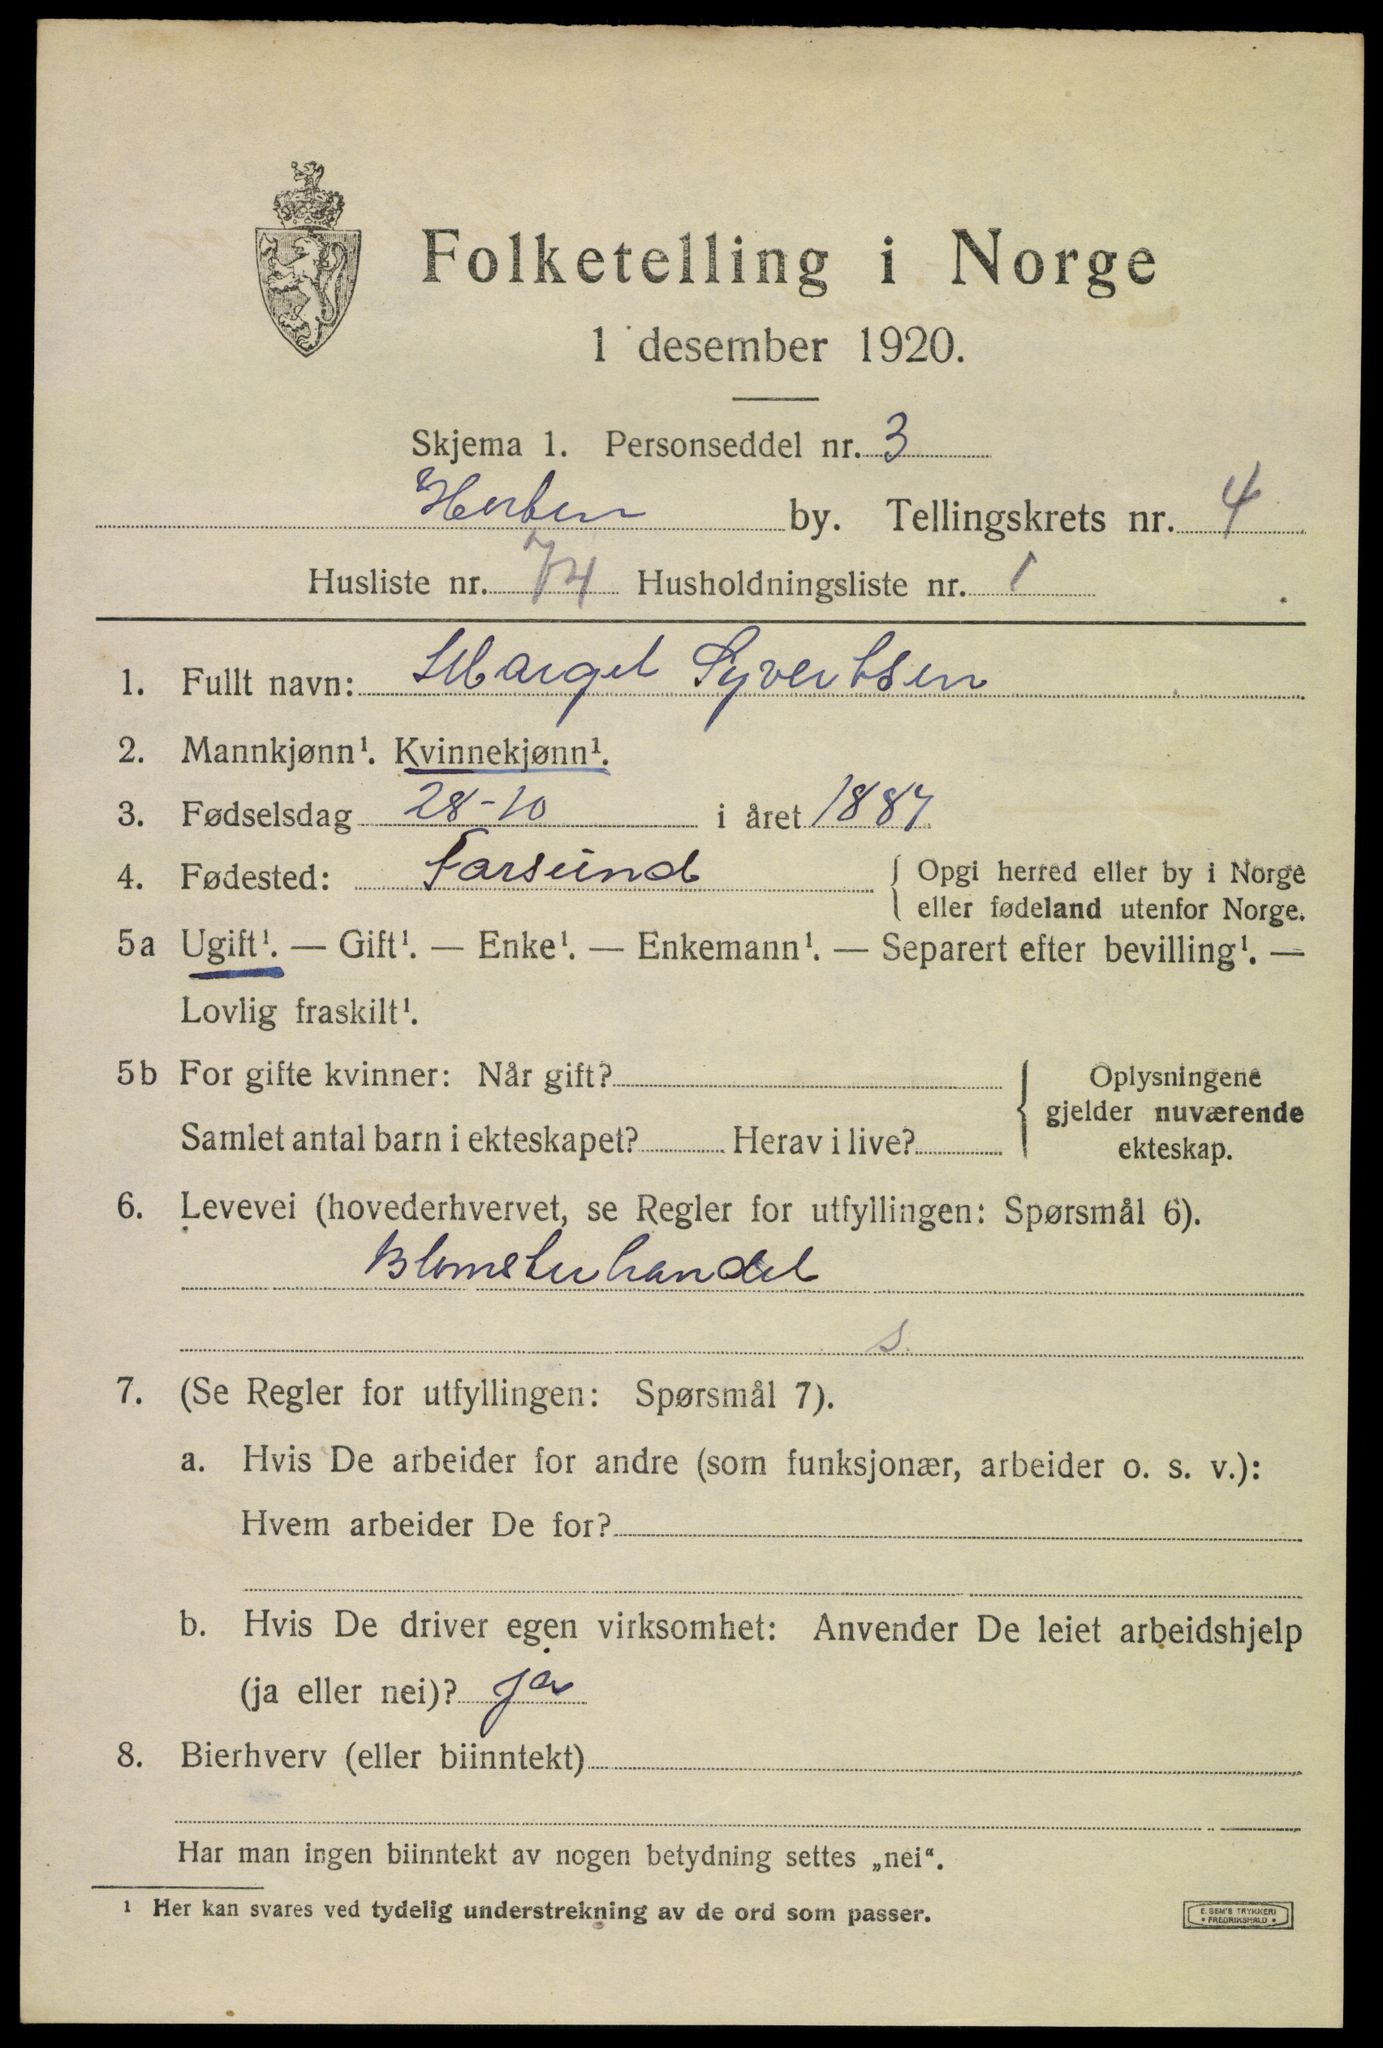 Folketelling i Norge
1 desember 1920.
Skjema 1. Personseddel nr. 3
Horten by. Tellingskrets nr. 4
Husliste nr. 74 Husholdningsliste nr. 1
1. Fullt navn: Marget Syvertsen
2. Mannkjønn¹. Kvinnekjønn¹.
3. Fødselsdag 28-10 i året 1887
4. Fødested: Farsund { Opgi herred eller by i Norge
eller fødeland utenfor Norge.
5a Ugift¹. — Gift¹. — Enke¹. — Enkemann¹. — Separert efter bevilling¹. —
Lovlig fraskilt¹.
5b For gifte kvinner: Når gift? { Oplysningene
gjelder nuværende
Samlet antal barn i ekteskapet? Herav i live? ekteskap.
6. Levevei (hovederhvervet, se Regler for utfyllingen: Spørsmål 6).
Blomsterhandel
s.
7. (Se Regler for utfyllingen: Spørsmål 7).
a. Hvis De arbeider for andre (som funksjonær, arbeider o. s. v.):
Hvem arbeider De for?
b. Hvis De driver egen virksomhet: Anvender De leiet arbeidshjelp
(ja eller nei)? ja
8. Bierhverv (eller biinntekt)
Har man ingen biinntekt av nogen betydning settes „nei“.
¹ Her kan svares ved tydelig understrekning av de ord som passer.
E. SEM'S TRYKKERI
• FREDRIKSHALD •